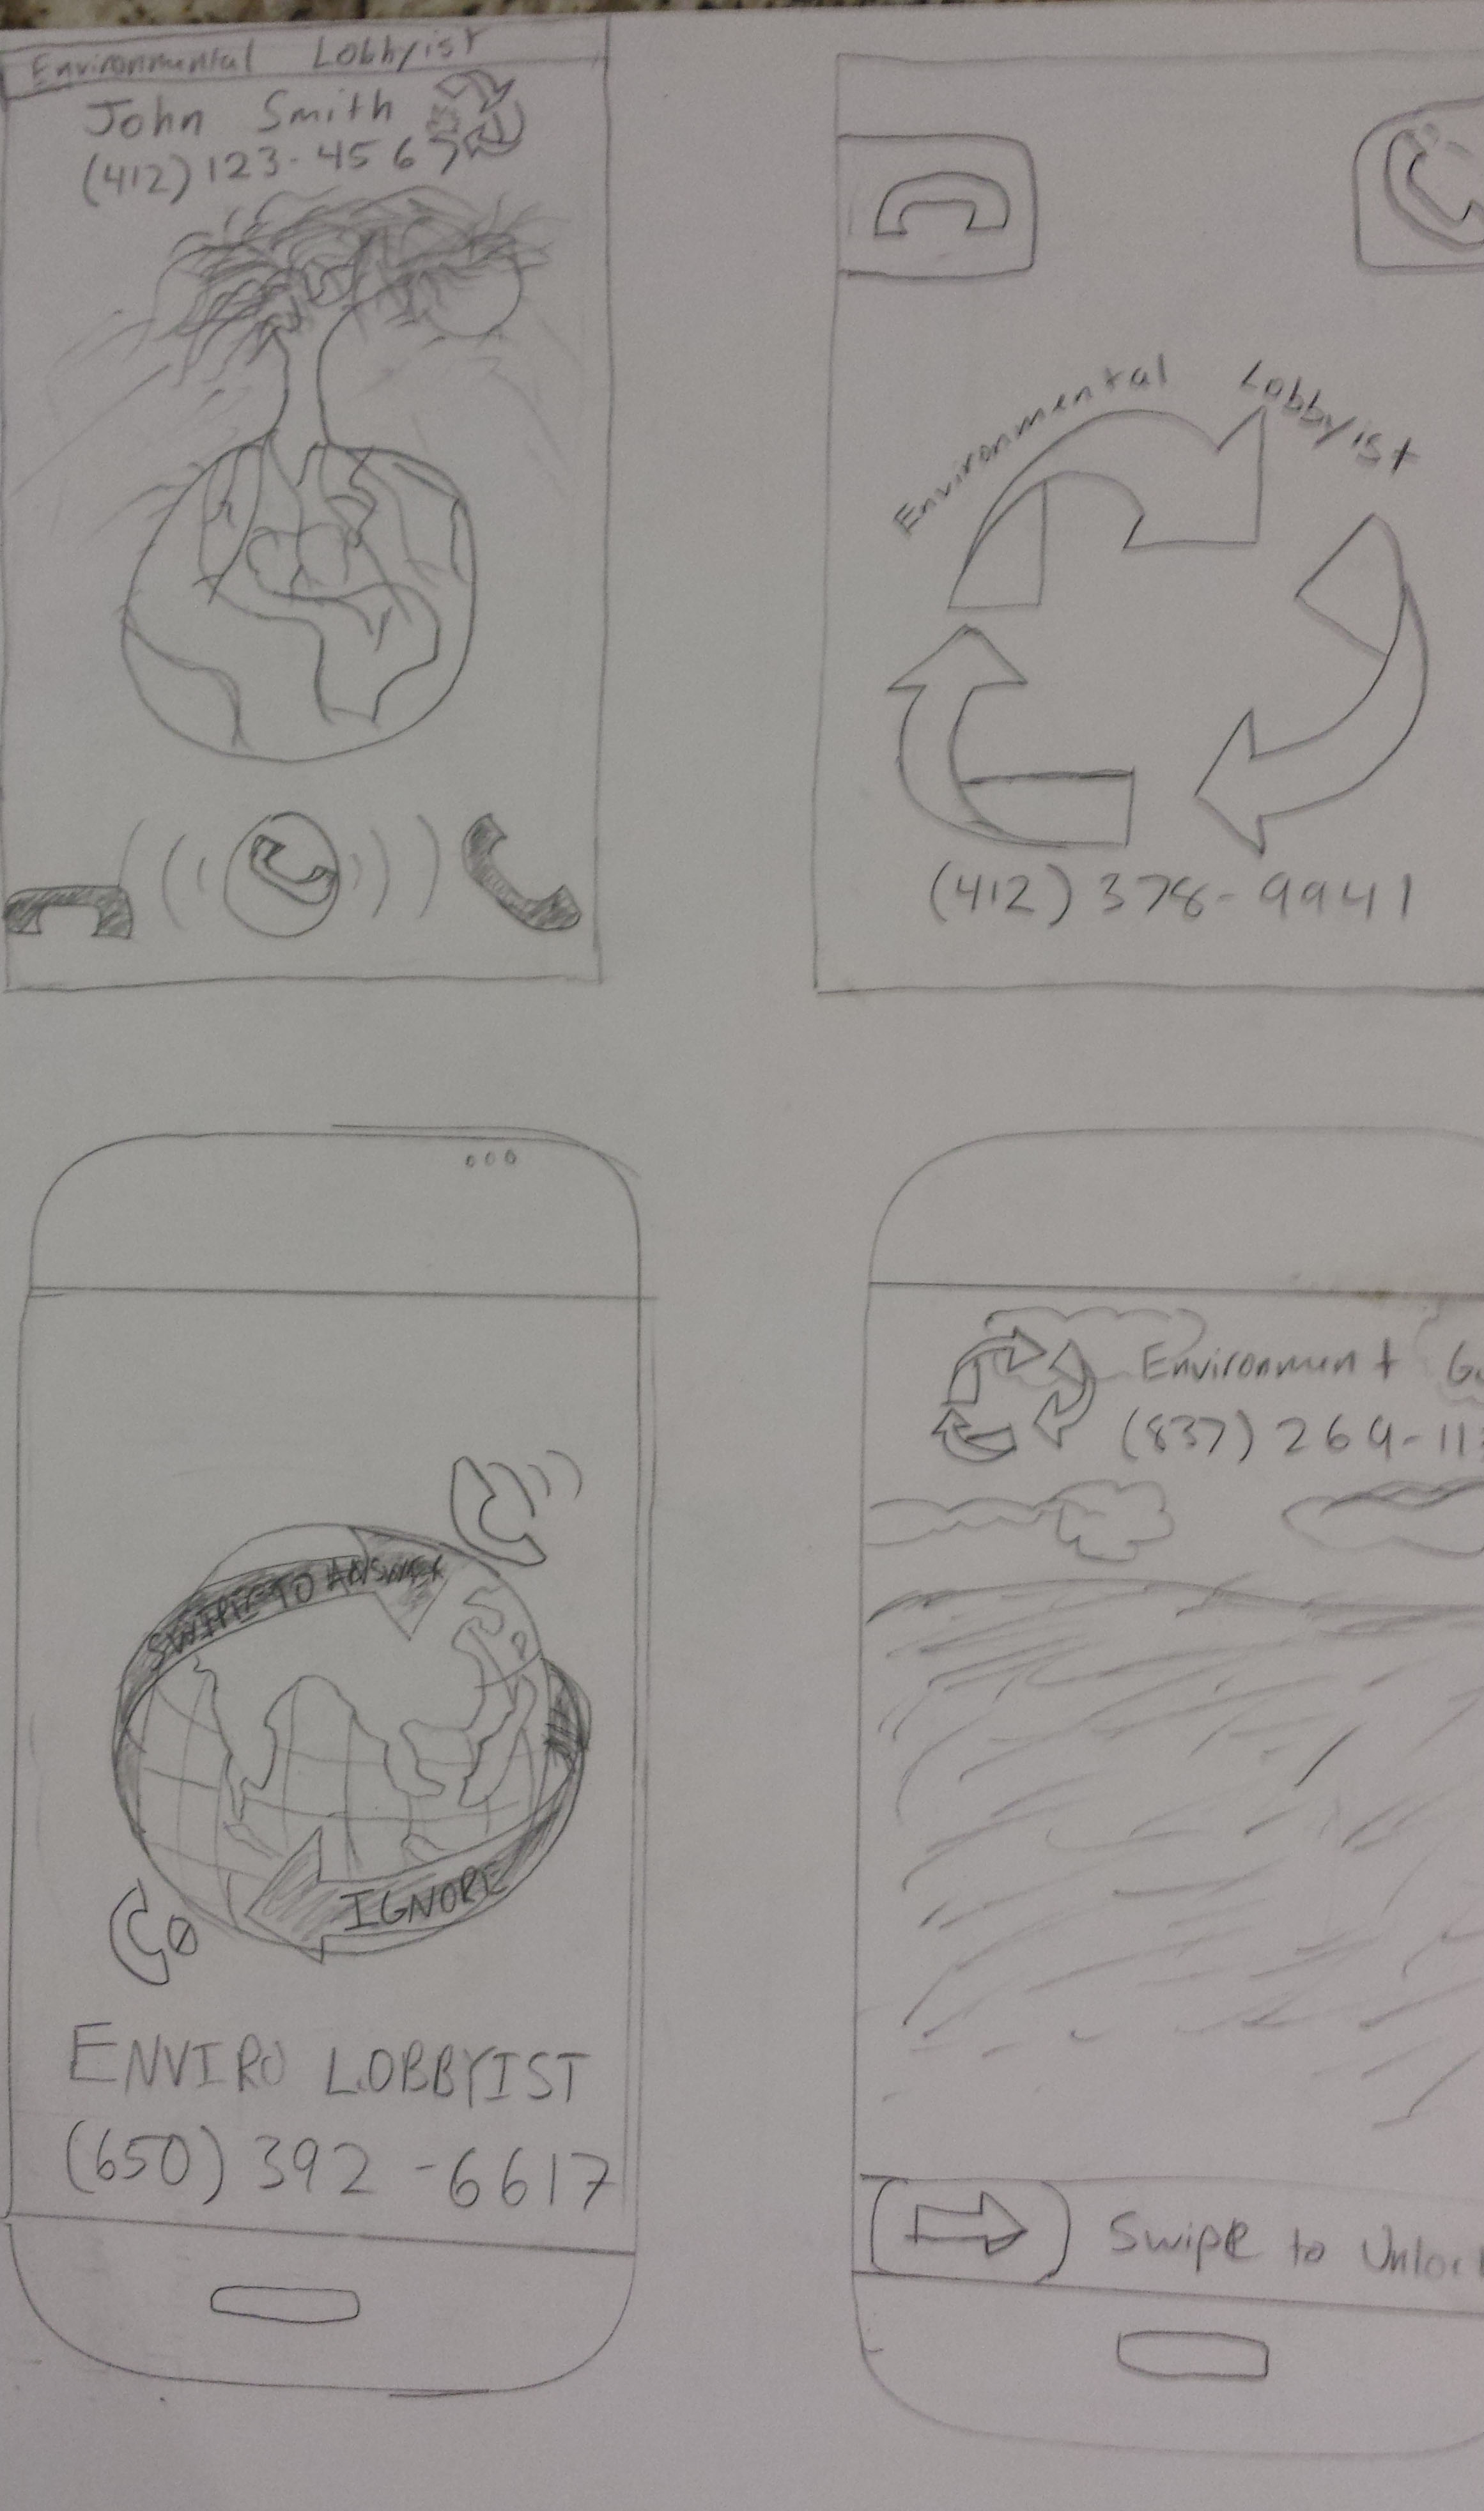 Environmental Lobbyist
John Smith
(412) 123-4567
Environmental Lobbyist
(412) 378-9941
SWIPE TO ANSWER
IGNORE
ENVIRO LOBBYIST
(650) 392-6617
Environment
(837) 264-11
Swipe to Unlock